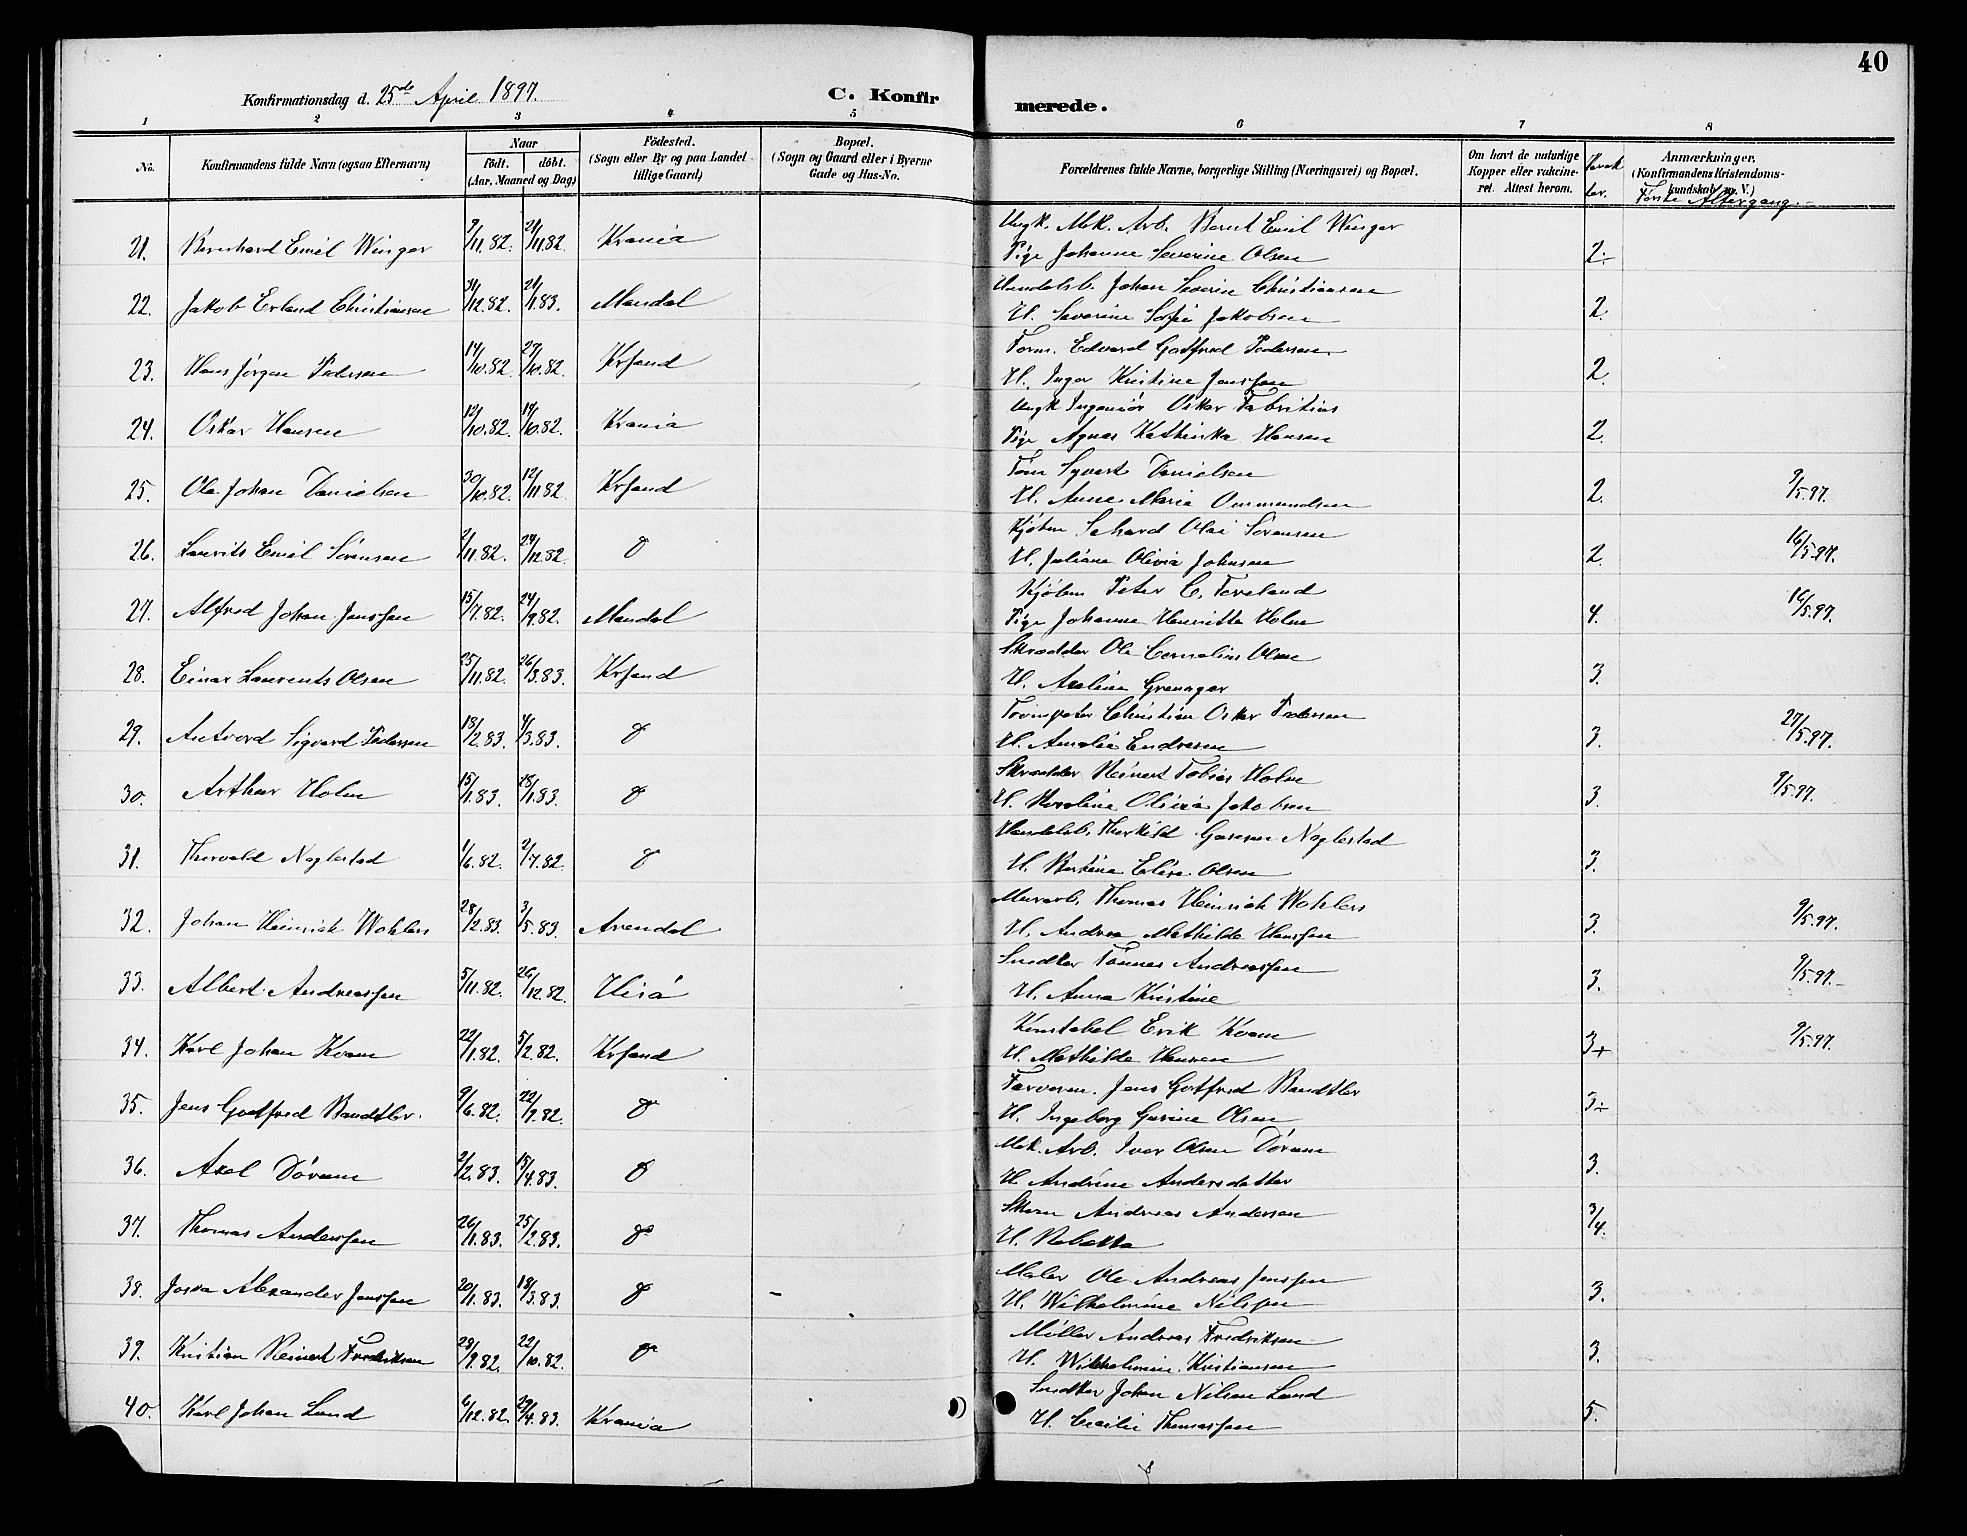 40
Konfirmationsdag d. 25de April 1897.
C. Konfirmerede.
1 2 3 4 5 6 7 8
No.
Konfirmandens fulde Navn (ogsaa Efternavn)
Naar
födt. döbt.
(Aar, Maaned og Dag)
Födested.
(Sogn eller By og paa Landet
tillige Gaard)
Bopæl.
(Sogn og Gaard eller i Byerne
Gade og Hus-No.
Forældrenes fulde Navne, borgerlige Stilling (Næringsvei) og Bopæl.
Om havt de naturlige
Kopper eller vakcine-
ret. Attest herom.
Karak
ter.
Anmærkninger.
(Konfirmandens Kristendoms-
kundskab m. V.)
Første Altergang.
Ungk. Mek. Arb. Bernt Emil Winger
21. Bernhard Emil Winger 7/11.82. 21/11.82. Krania Pige Johanne Severine Olsen 2.
Handelsb. Johan Severin Christiansen
22. Jakob Erland Christiansen 31/12.82. 21/1.83. Mandal H. Severine Sofie Jakobsen 2.
Form. Edvard Gotfred Pedersen
23. Hans Jørgen Pedersen 14/10.82. 27/10.82. Krsand H. Inger Kristine Jenssen 2.
Ungk Ingeniör Oskar Fabritius
24. Oskar Hansen 12/10.82. 19/10.82. Krania Pige Agnes Kathinka Hansen 2.
Tøm Syvert Danielsen
25. Ole Johan Danielsen 30/10.82. 12/11.82 Krsand H. Anne Maria Ommundsen 2. 9/5.97.
Kjøbm Olai Sørensen
26. Laurits Emil Sörensen 2/11.82. 29/12.82. H. Juliane Olivia Johnsen 2. 16/5.97.
Kjøbm Peter C. Foreland
27. Alfred Johan Jenssen 15/7.82. 24/9.82. Mandal Pige Johanne Henritte Holm 4. 16/5.97.
Skrædder Ole Cornelius Olsen
28. Einar Laurents Olsen 25/11.82. 26/3.83. Krsand H. Axeline 3.
Christian Oskar Pedersen
29. Antvord Sigvard Pedersen 18/2.83. 4/3.83. H. Amalie Endresen 3. 27/5.97.
Skrædder Reinert Tobias Holm
30. Arthur Holm 15/1.83. 28/1.83. H. Karoline Olivia Jakobsen 3. 9/5.97.
Handelsb. Therkild Naglestad
31. Thorvald Naglestad 1/6.82. 2/7.82. H. Bertine Elise Olsen 3.
Murarb. Thomas Heinrich Wohlers
32. Johan Heinrich Wohlers 28/2.83. 3/5.83. Arendal H. Andrea Mathilde Hanssen 3. 9/5.97.
Snedker Tønnes Andreassen
33. Albert Andreassen 5/11.82. 26/12.82. Hisö H. Anna Kristine 3. 9/5.97.
Konstabel Erik Kvam
34. Karl Johan Kvam 22/1.82. 5/2.82. Krsand H. Mathilde Hansen 3+ 9/5.97.
Farversv. Jens Gotfred Bandtler
35. Jens Gotfred Bandtler. 9/6.82. 22/7.82. H. Ingeborg Gurine Olsen 3÷
Mek. Arb. Iver Olsen Dørum
36. Axel Dörum 2/2.83. 15/4.83. H Andrine Andersdatter 3.
Skom Andreas Andersen
37. Thomas Anderssen 26/1.83. 25/2.83. H. Rebekka 3/4.
Maler Ole Andreas Jenssen
38. Josva Alexander Jenssen 20/1.83. 18/3.83. H. Wilhelmine Nilssen 3.
Møller Andreas Fredriksen
39. Kristian Reinert Fredriksen 29/9.82. 22/10.82. H. Wilhelmine Kristiansen 3.
Snedker Johan Nilsen Lund
40. Karl Johan Lund 6/12.82. 29/4.83. Krania H. Cecilie Thomassen 5.